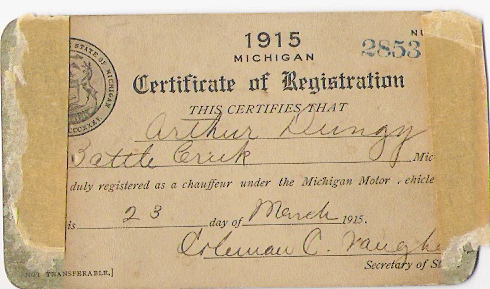 1915
MICHIGAN
2853
Certificate of Registration
THIS CERTIFIES THAT
Arthur Dungy
Battle Creek Mic
duly registered as a chauffeur under the Michigan Motor ehicle
is 23 day of March 1915.
Coleman C. Vaughe
Secretary of St
NOT TRANSFERABLE.]
STATE OF MICHIGAN